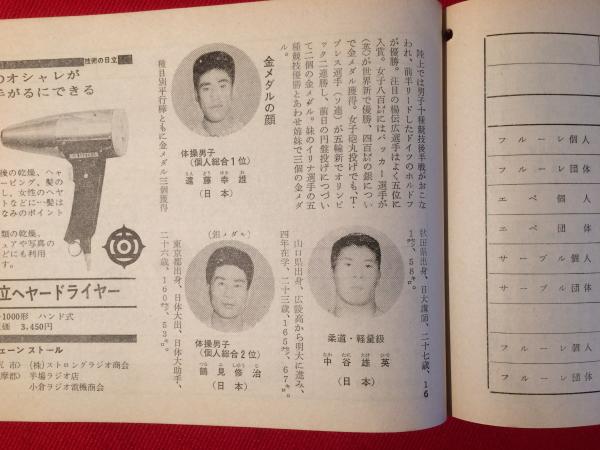 陸上では男子十種競技後半戦がおこな
われ、前半リードしたドイツのホルドフ
が優勝。注目の楊伝広選手はよく五位に
入賞。女子八百㍍にはパッカー選手が
(英)が世界新で優勝、四百㍍の銀につい
で金メダル獲得。女子砲丸投げでも、T・
プレス選手(ソ連)が五輪新でオリンピ
ック二連勝し、前日の円盤投げにつづい
て二個の金メダル。妹のイリナ選手の五
種競技優勝とあわせ姉妹で三個の金メダ
ル。
金メダルの顔
体操男子
(個人総合1位)
遠藤幸雄
(日本)
種目別平行棒ともに金メダル三個獲得
秋田県出身、日大講師、二十七歳、16
1㌢、58㌔。
柔道・軽量級
中谷雄英
(日本)
山口県出身、広陵高から明大に進み、
四年在学、二十三歳、165㌢、67㌔。
(銀メダル)
体操男子
(個人総合2位)
鶴見修治
(日本)
東京都出身、日体大出、日体大助手、
二十六歳、160㌢、53㌔。
技術の日立
のオシャレが
手がるにできる
後の乾燥、ヘャ
ーピング、髪の
し、女性のヘヤ
トなどに…髪は
なみのポイント
類の乾燥、
ュアや写真の
どにも利用
す。
立ヘヤードライヤー
-1000形 ハンド式
価 3,450円
ェーン ストール
市〉 (株)ストロングラジオ商会
摩郡〉 半場ラジオ店
小倉ラジオ電機商会
フルーレ個人
フルーレ団体
エペ個人
エペ団体
サーブル個人
サーブル団体
フルーレ個人
フルーレ団体